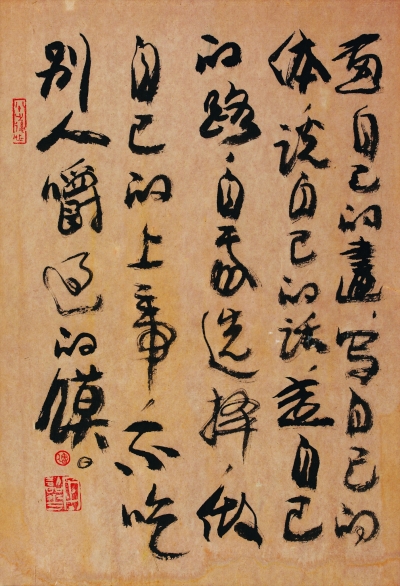 画自己的畫，写自己的
体，说自己的话，走自己
的路，自我选择，做
自己的上帝，不吃
别人嚼过的馍。